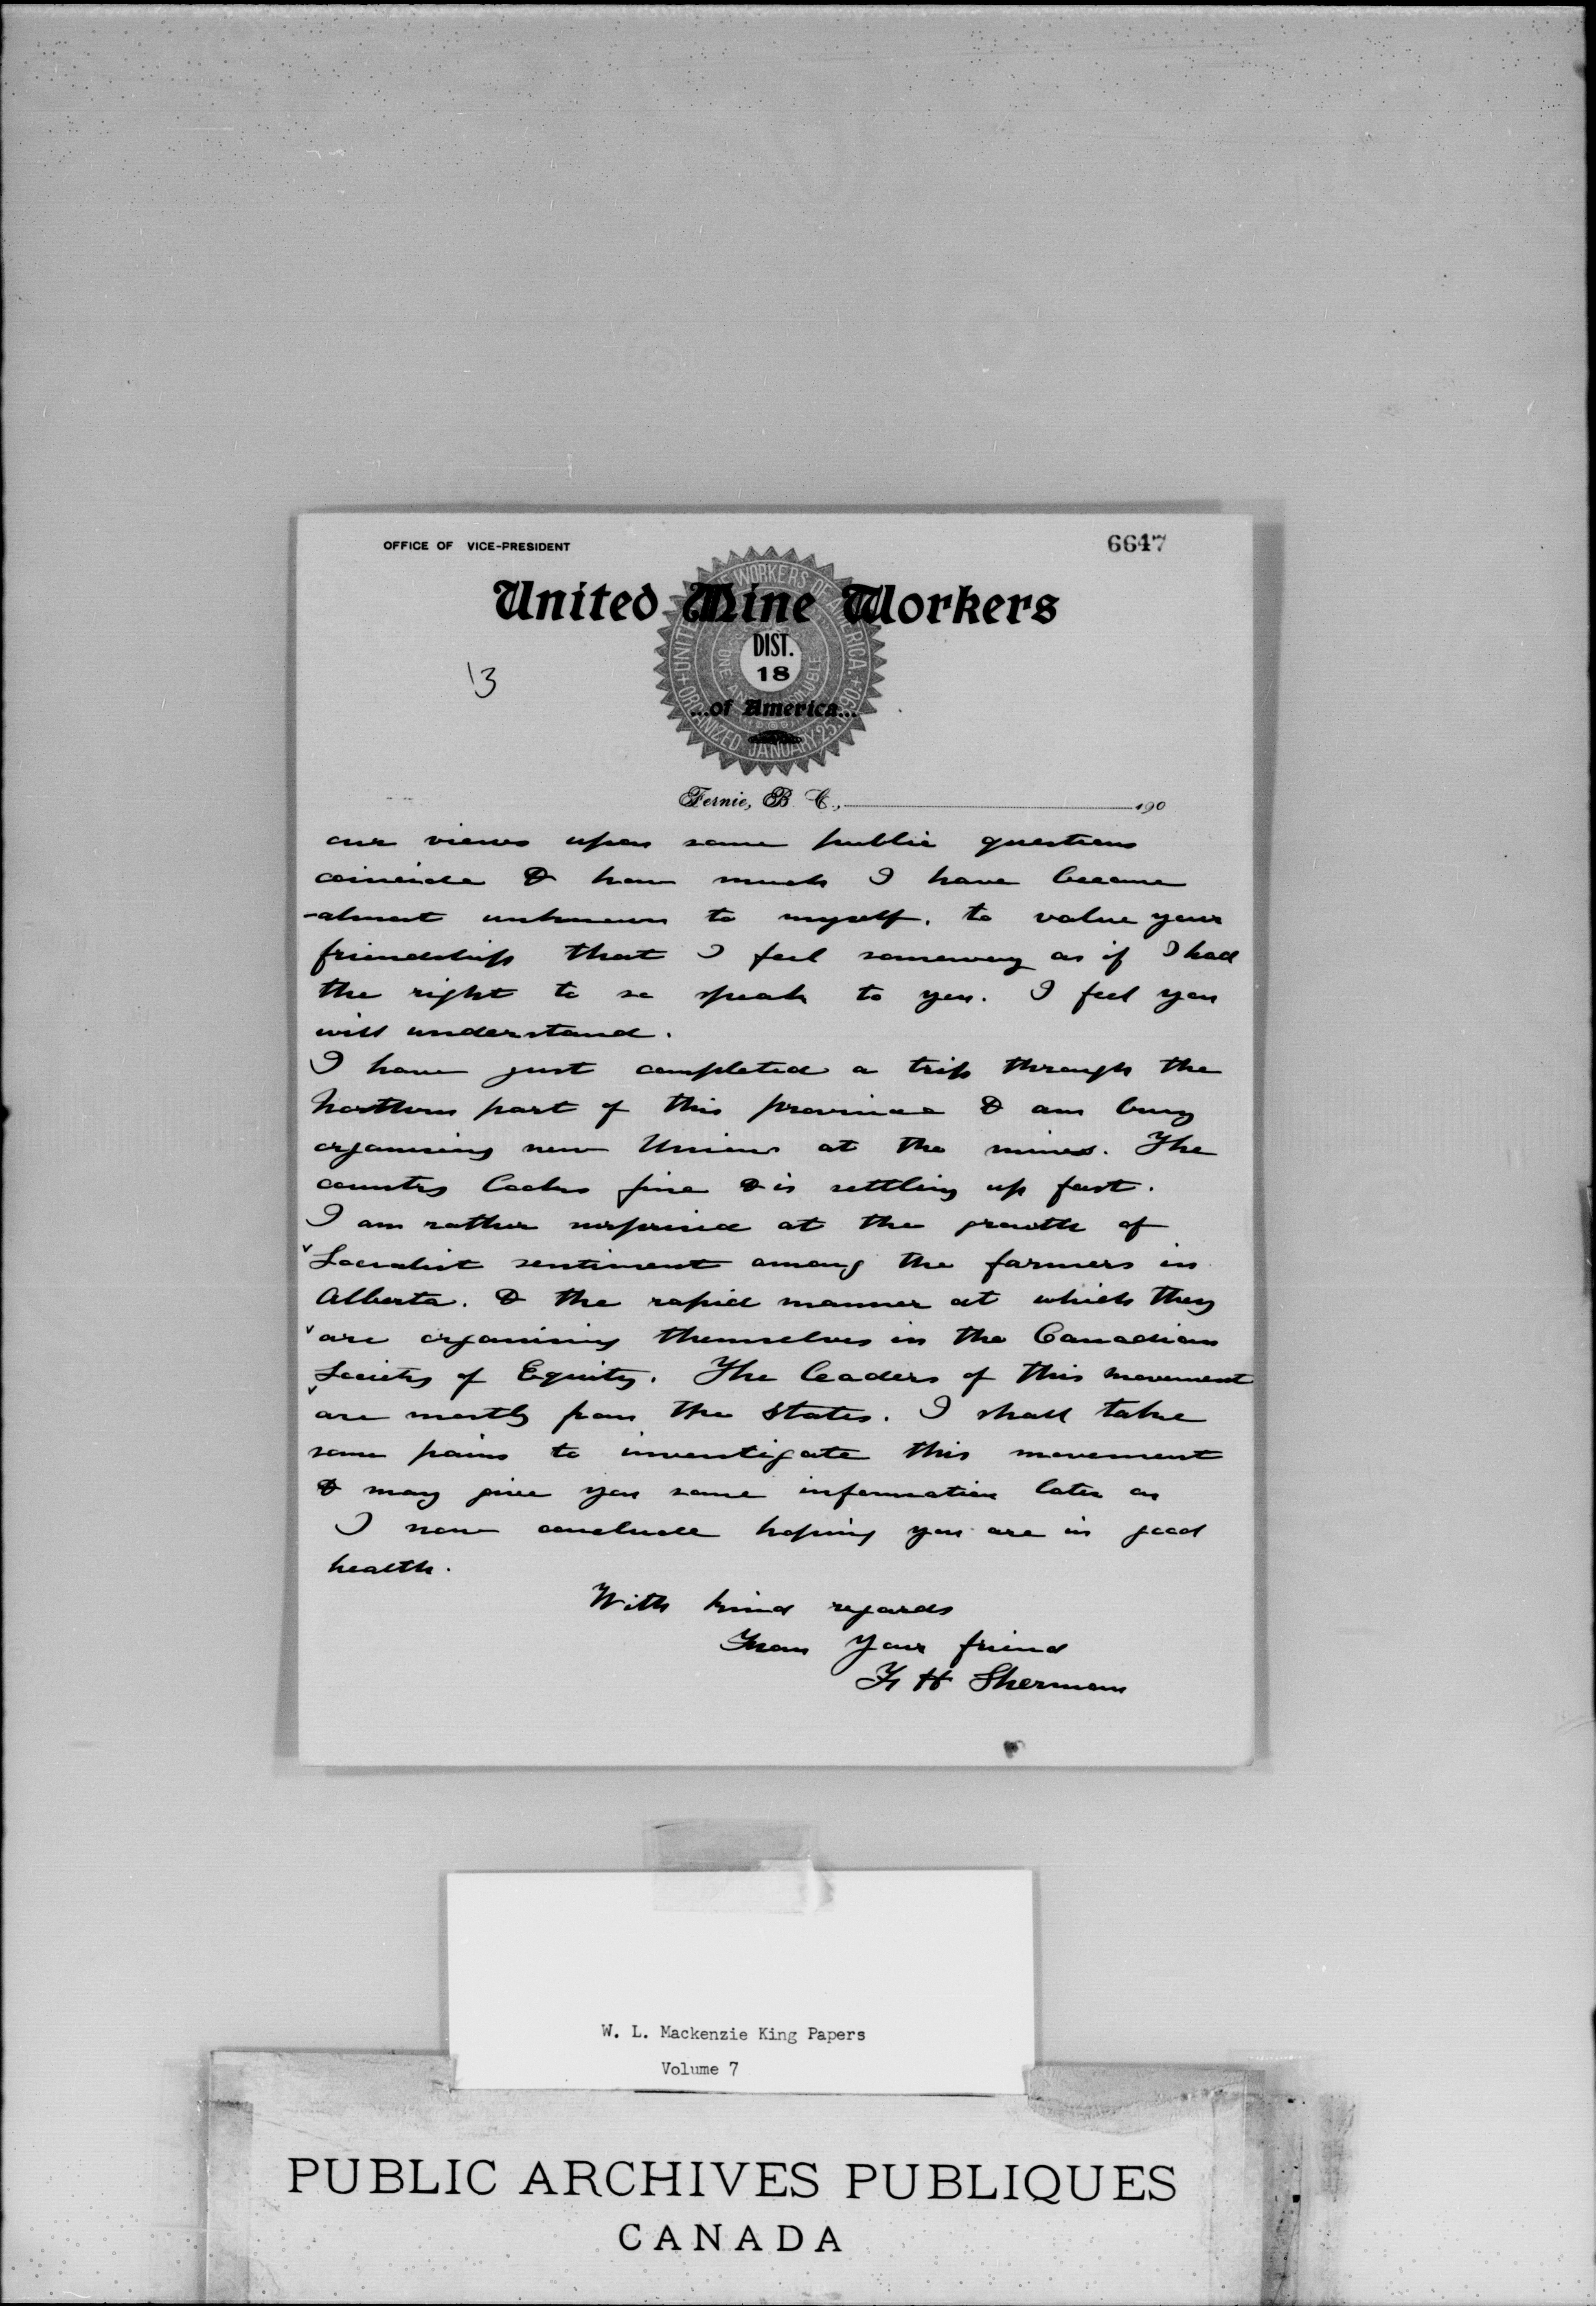 OFFICE OF VICE-PRESIDENT
6647
United Mine Workers
UNITED MINE WORKERS OF AMERICA. ORGANIZED JANUARY 25, 1890
DIST.
18
...of America...
13
Fernie, B. C., 190
our views upon some public questions
coincide & how much I have become
-almost unknown to myself. to value your
friendship that I feel someway as if I had
the right to so speak to you. I feel you
will understand.
I have just completed a trip through the
Northern part of this province & am busy
organising new Unions at the mines. The
country looks fine & is settling up fast.
I am rather surprised at the growth of
Socialist sentiment among the farmers in
Alberta. & the rapid manner at which they
are organising themselves in the Canadian
Society of Equity. The leaders of this movement
are mostly from the States. I shall take
some pains to investigate this movement
& may give you some information later on
I now conclude hoping you are in good
health.
With kind regards
From Your friend
F H Sherman
W. L. Mackenzie King Papers
Volume 7
PUBLIC ARCHIVES PUBLIQUES
CANADA